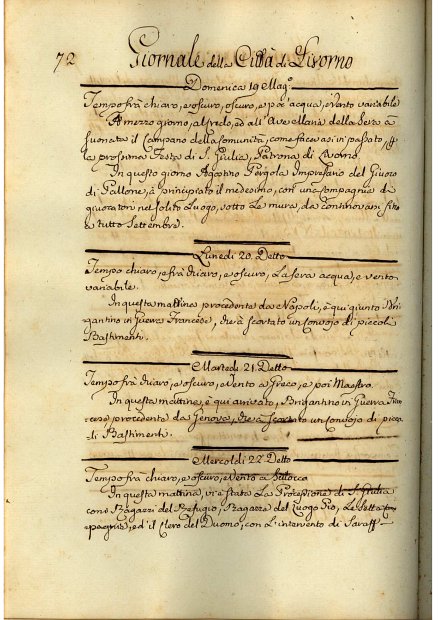 72 Giornale della Città di Livorno
Domenica 19 Magº
Tempo frà chiaro, e oscuro, oscuro, e pò acqua, e vento variabile
A mezzo giorno, al tredo, ed all' Ave Maria della Sera à
suonato il Campano della Comunità, come faceasi in passato, p
la prossima Festa di S. Giulia, Patrona di Livorno.
In questo giorno Agostino Pergola Impresario del Giuoco
di Pallone, à principiato il medesimo, con una Compagnia di
giuocatori nel solito Luogo, sotto le mura, da continovarsi fino
a tutto Settembre.
Lunedi 20. Detto
Tempo chiaro, e frà chiaro, e oscuro, La sera acqua, e vento
variabile.
In questa mattina procedente da Napoli, è qui giunto Bri
gantino in Guerra Francese, che à scortato un Convojo di piccoli
Bastimenti.
Martedi 21. Detto
Tempo frà chiaro, e oscuro, e vento a Greco, e poi Maestro.
In questa mattina, è qui arrivato, Brigantino in Guerra Fran
cese procedente da Genova, che à scortato un Convojo di picco
li Bastimenti.
Mercoldi 22 Detto
Tempo frà chiaro, e oscuro, e vento a Scilocco
In questa mattina, vi è stata La Processione di S. Giulia
con i Ragazzi del Refugio, Ragazze del Luogo Pio, Le Sette Com
pagnie, ed il Clero del Duomo, con L'intervento di